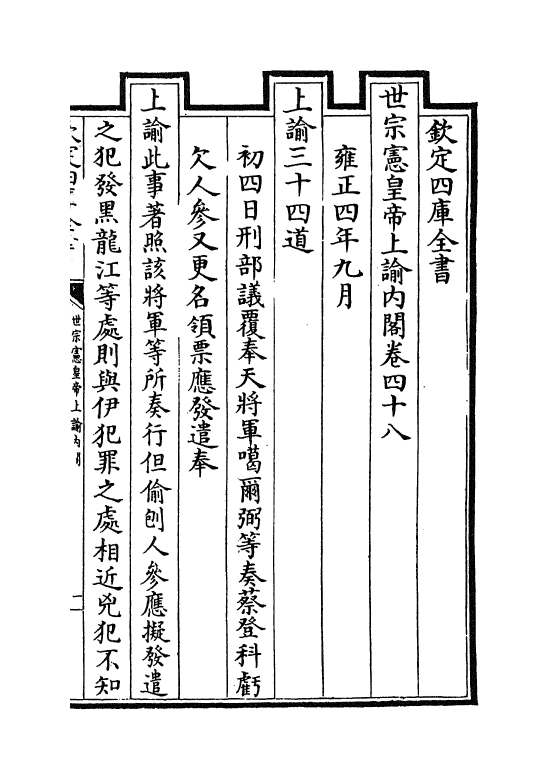 欽定四庫全書
世宗憲皇帝上諭內閣卷四十八
雍正四年九月
上諭三十四道
初四日刑部議覆奉天將軍噶爾弼等奏蔡登科虧
欠人參又更名領票應發遣奉
上諭此事著照該將軍等所奏行但偷刨人參應擬發遣
之犯發黑龍江等處則與伊犯罪之處相近兇犯不知
世宗憲皇帝上諭內